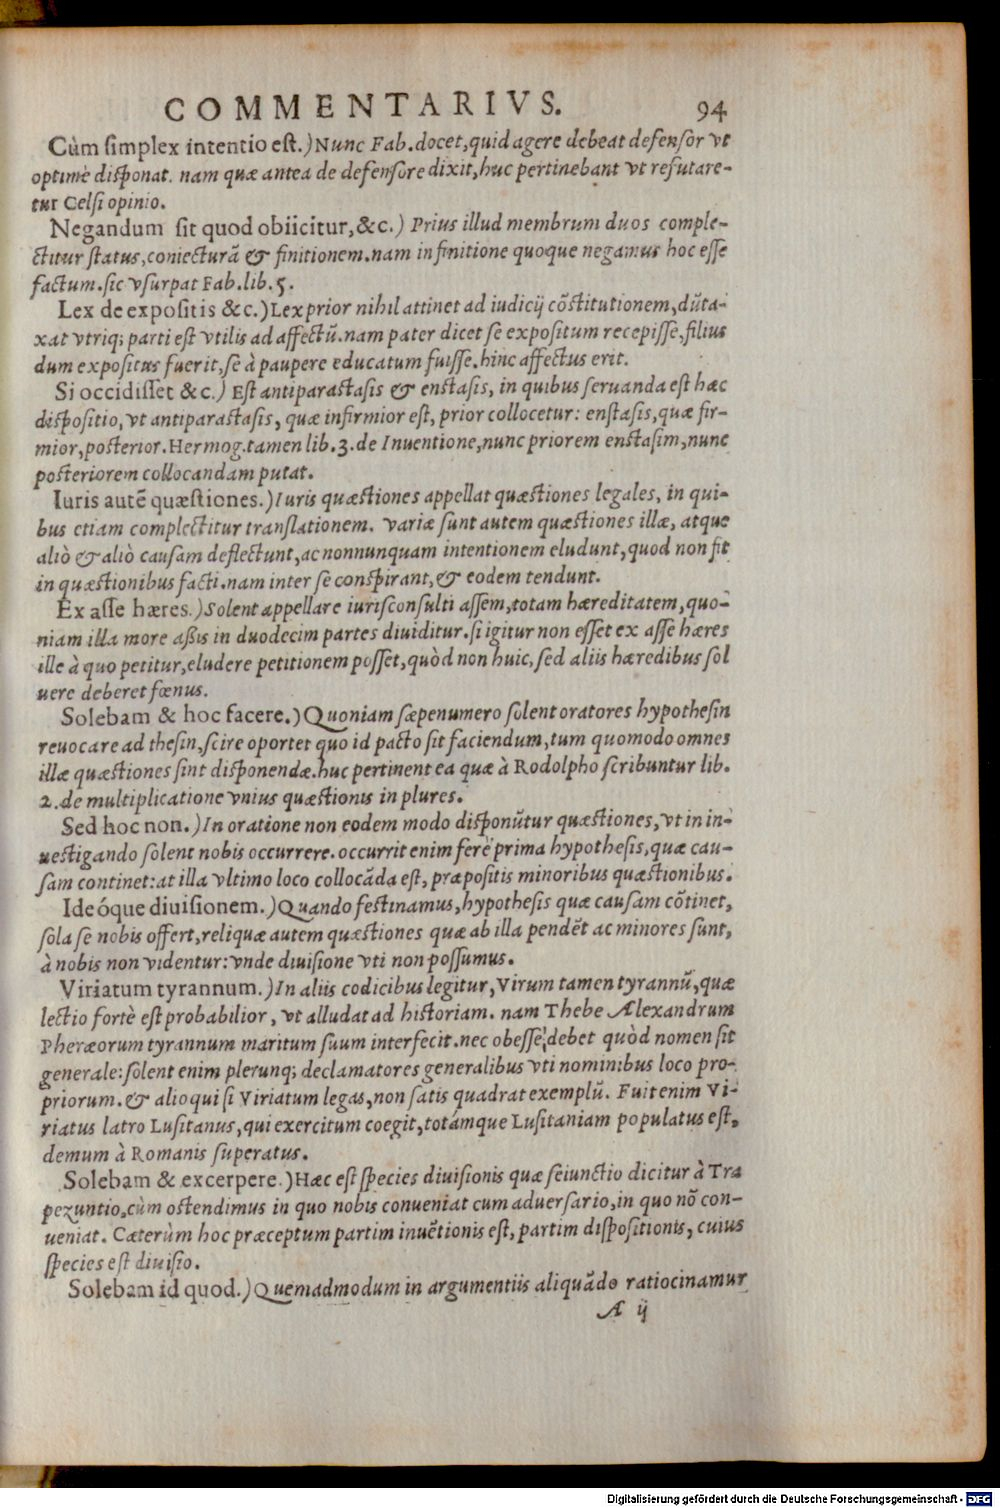 COMMENTARIVS. 94
Cùm simplex intentio est.) Nunc Fab. docet, quid agere debeat defensor vt
optimè disponat. nam quæ antea de defensore dixit, huc pertinebant vt refutare-
tur Celsi opinio.
Negandum sit quod obiicitur, &c.) Prius illud membrum duos comple-
ctitur status, coniecturā & finitionem. nam in finitione quoque negamus hoc esse
factum. sic vsurpat Fab. lib. 5.
Lex de expositis &c.) Lex prior nihil attinet ad iudicij cōstitutionem, dūta-
xat vtriq; parti est vtilis ad affectū. nam pater dicet se expositum recepisse, filius
dum expositus fuerit, se à paupere educatum fuisse. hinc affectus erit.
Si occidisset &c.) Est antiparastasis & enstasis, in quibus seruanda est hæc
dispositio, vt antiparastasis, quæ infirmior est, prior collocetur: enstasis, quæ fir-
mior, posterior. Hermog. tamen lib. 3. de Inuentione, nunc priorem enstasim, nunc
posteriorem collocandam putat.
Iuris autē quæstiones.) Iuris quæstiones appellat quæstiones legales, in qui-
bus etiam complectitur translationem. variæ sunt autem quæstiones illæ, atque
aliò & aliò causam deflectunt, ac nonnunquam intentionem eludunt, quod non fit
in quæstionibus facti. nam inter se conspirant, & eodem tendunt.
Ex asse hæres.) Solent appellare iurisconsulti assem, totam hæreditatem, quo-
niam illa more aßis in duodecim partes diuiditur. si igitur non esset ex asse hæres
ille à quo petitur, eludere petitionem posset, quòd non huic, sed aliis hæredibus sol
uere deberet fœnus.
Solebam & hoc facere.) Quoniam sæpenumero solent oratores hypothesin
reuocare ad thesin, scire oportet quo id pacto sit faciendum, tum quomodo omnes
illæ quæstiones sint disponendæ. huc pertinent ea quæ à Rodolpho scribuntur lib.
2. de multiplicatione vnius quæstionis in plures.
Sed hoc non.) In oratione non eodem modo disponūtur quæstiones, vt in in-
uestigando solent nobis occurrere. occurrit enim ferè prima hypothesis, quæ cau-
sam continet: at illa vltimo loco collocāda est, præpositis minoribus quæstionibus.
Ideóque diuisionem.) Quando festinamus, hypothesis quæ causam cōtinet,
sola se nobis offert, reliquæ autem quæstiones quæ ab illa pendēt ac minores sunt,
à nobis non videntur: vnde diuisione vti non possumus.
Viriatum tyrannum.) In aliis codicibus legitur, Virum tamen tyrannū, quæ
lectio fortè est probabilior, vt alludat ad historiam. nam Thebe Alexandrum
Pheræorum tyrannum maritum suum interfecit. nec obesse debet quòd nomen sit
generale: solent enim plerunq; declamatores generalibus vti nominibus loco pro-
priorum. & alioqui si Viriatum legas, non satis quadrat exemplū. Fuit enim Vi-
riatus latro Lusitanus, qui exercitum coegit, totámque Lusitaniam populatus est,
demum à Romanis superatus.
Solebam & excerpere.) Hæc est species diuisionis quæ seiunctio dicitur à Tra
pezuntio, cùm ostendimus in quo nobis conueniat cum aduersario, in quo nō con-
ueniat. Cæterùm hoc præceptum partim inuētionis est, partim dispositionis, cuius
species est diuisio.
Solebam id quod.) Quemadmodum in argumentiis aliquādo ratiocinamur
A ij
Digitalisierung gefördert durch die Deutsche Forschungsgemeinschaft - DFG